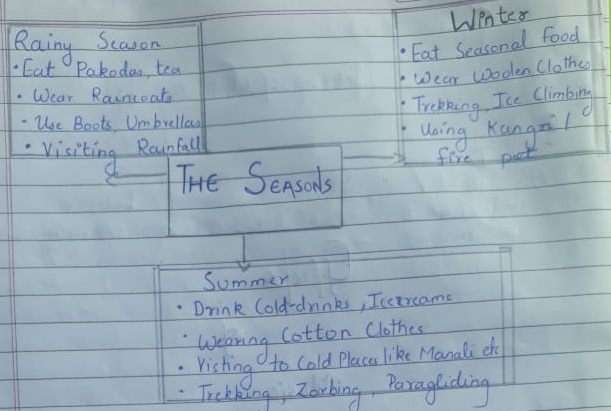 Rainy Season
• Eat Pakodas, tea
• Wear Raincoats
• Use Boots, Umbrellas
• Visiting Rainfall
Winter
• Eat Seasonal Food
• Wear Woolen Clothes
• Trekking, Ice Climbing
• Using Kangri /
fire pot
THE SEASONS
Summer
• Drink Cold-drinks, Icecreams
• Wearing Cotton Clothes
• Visting to Cold Places like Manali etc
• Trekking, Zorbing, Paragliding